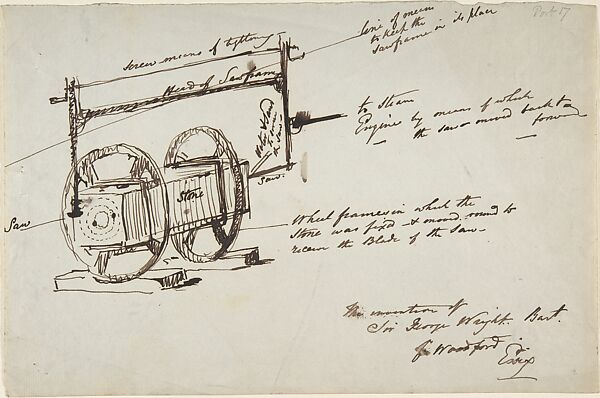 Port 17
line of means
to keep the
Sawframe in its place
Screw means of tightening
Head of Sawframe
to Steam
Engine by means of which
the saw moved back &
forward
Saw.
Stone
Saw
Wheel frames in which the
Stone was fixed & moved round to
receive the Blade of the Saw
The invention of
Sir George Wright. Bart.
of Woodford
Essex